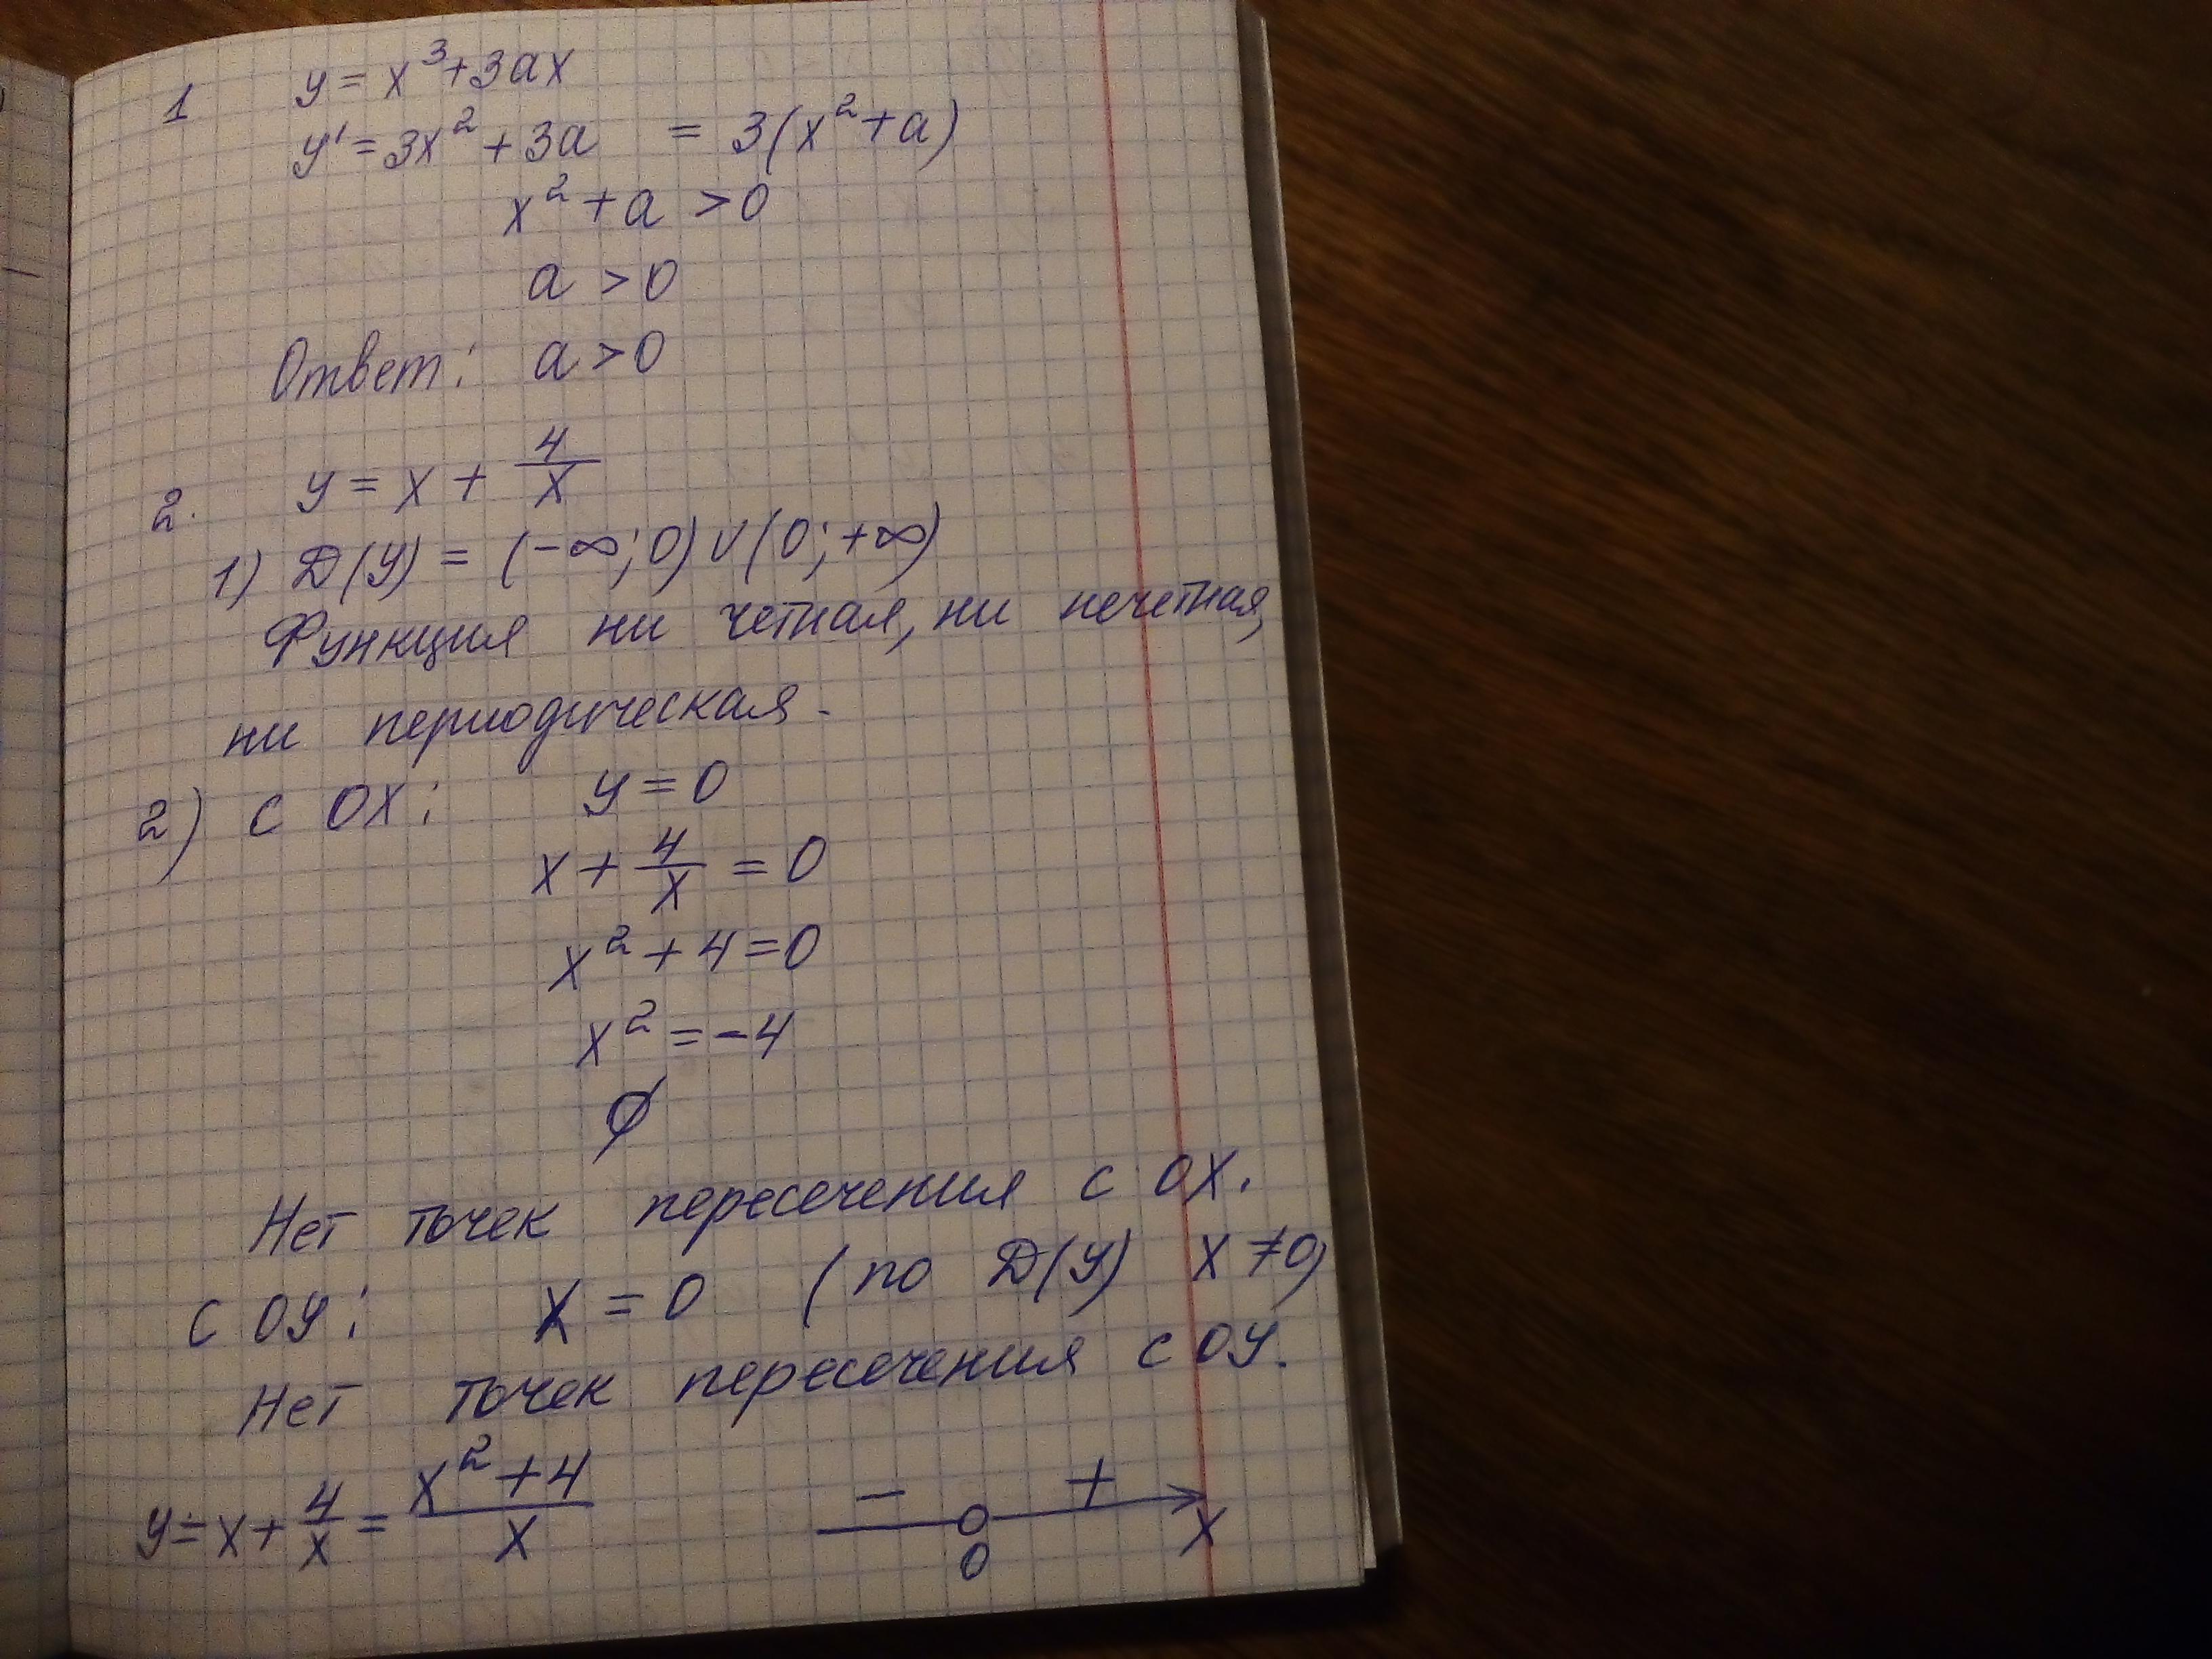 1 y = x³ + 3ax
y' = 3x² + 3a = 3(x² + a)
x² + a > 0
a > 0
Ответ: a > 0
2. y = x + 4/x
1) D(y) = (-∞; 0) ∪ (0; +∞)
Функция ни четная, ни нечетная,
ни периодическая.
2) с OX: y = 0
x + 4/x = 0
x² + 4 = 0
x² = -4
∅
Нет точек пересечения с OX.
с OY: x = 0 (по D(y) x ≠ 0)
Нет точек пересечения с OY.
y = x + 4/x = (x² + 4)/x − +
0 x